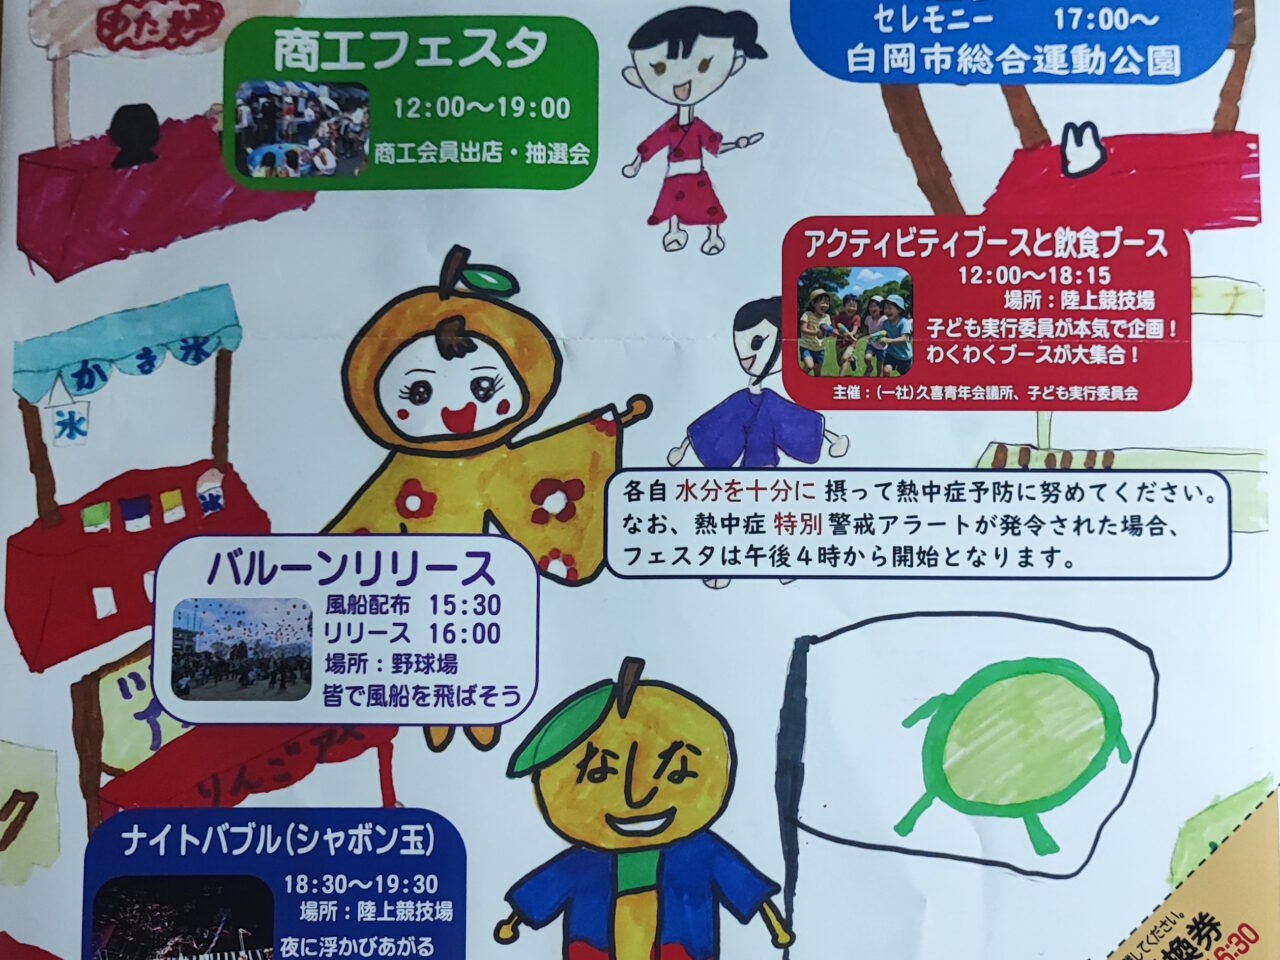 ゆかた
商工フェスタ
12:00〜19:00
商工会員出店・抽選会
セレモニー 17:00〜
白岡市総合運動公園
アクティビティブースと飲食ブース
12:00〜18:15
場所：陸上競技場
子ども実行委員が本気で企画！
わくわくブースが大集合！
主催：(一社)久喜青年会議所、子ども実行委員会
かき氷
氷
氷
各自 水分を十分に 摂って熱中症予防に努めてください。
なお、熱中症 特別 警戒アラートが発令された場合、
フェスタは午後４時から開始となります。
バルーンリリース
風船配布 15:30
リリース 16:00
場所：野球場
皆で風船を飛ばそう
りんごアメ
なしな
ナイトバブル(シャボン玉)
18:30〜19:30
場所：陸上競技場
夜に浮かびあがる
ク
してください。
換券
6:30